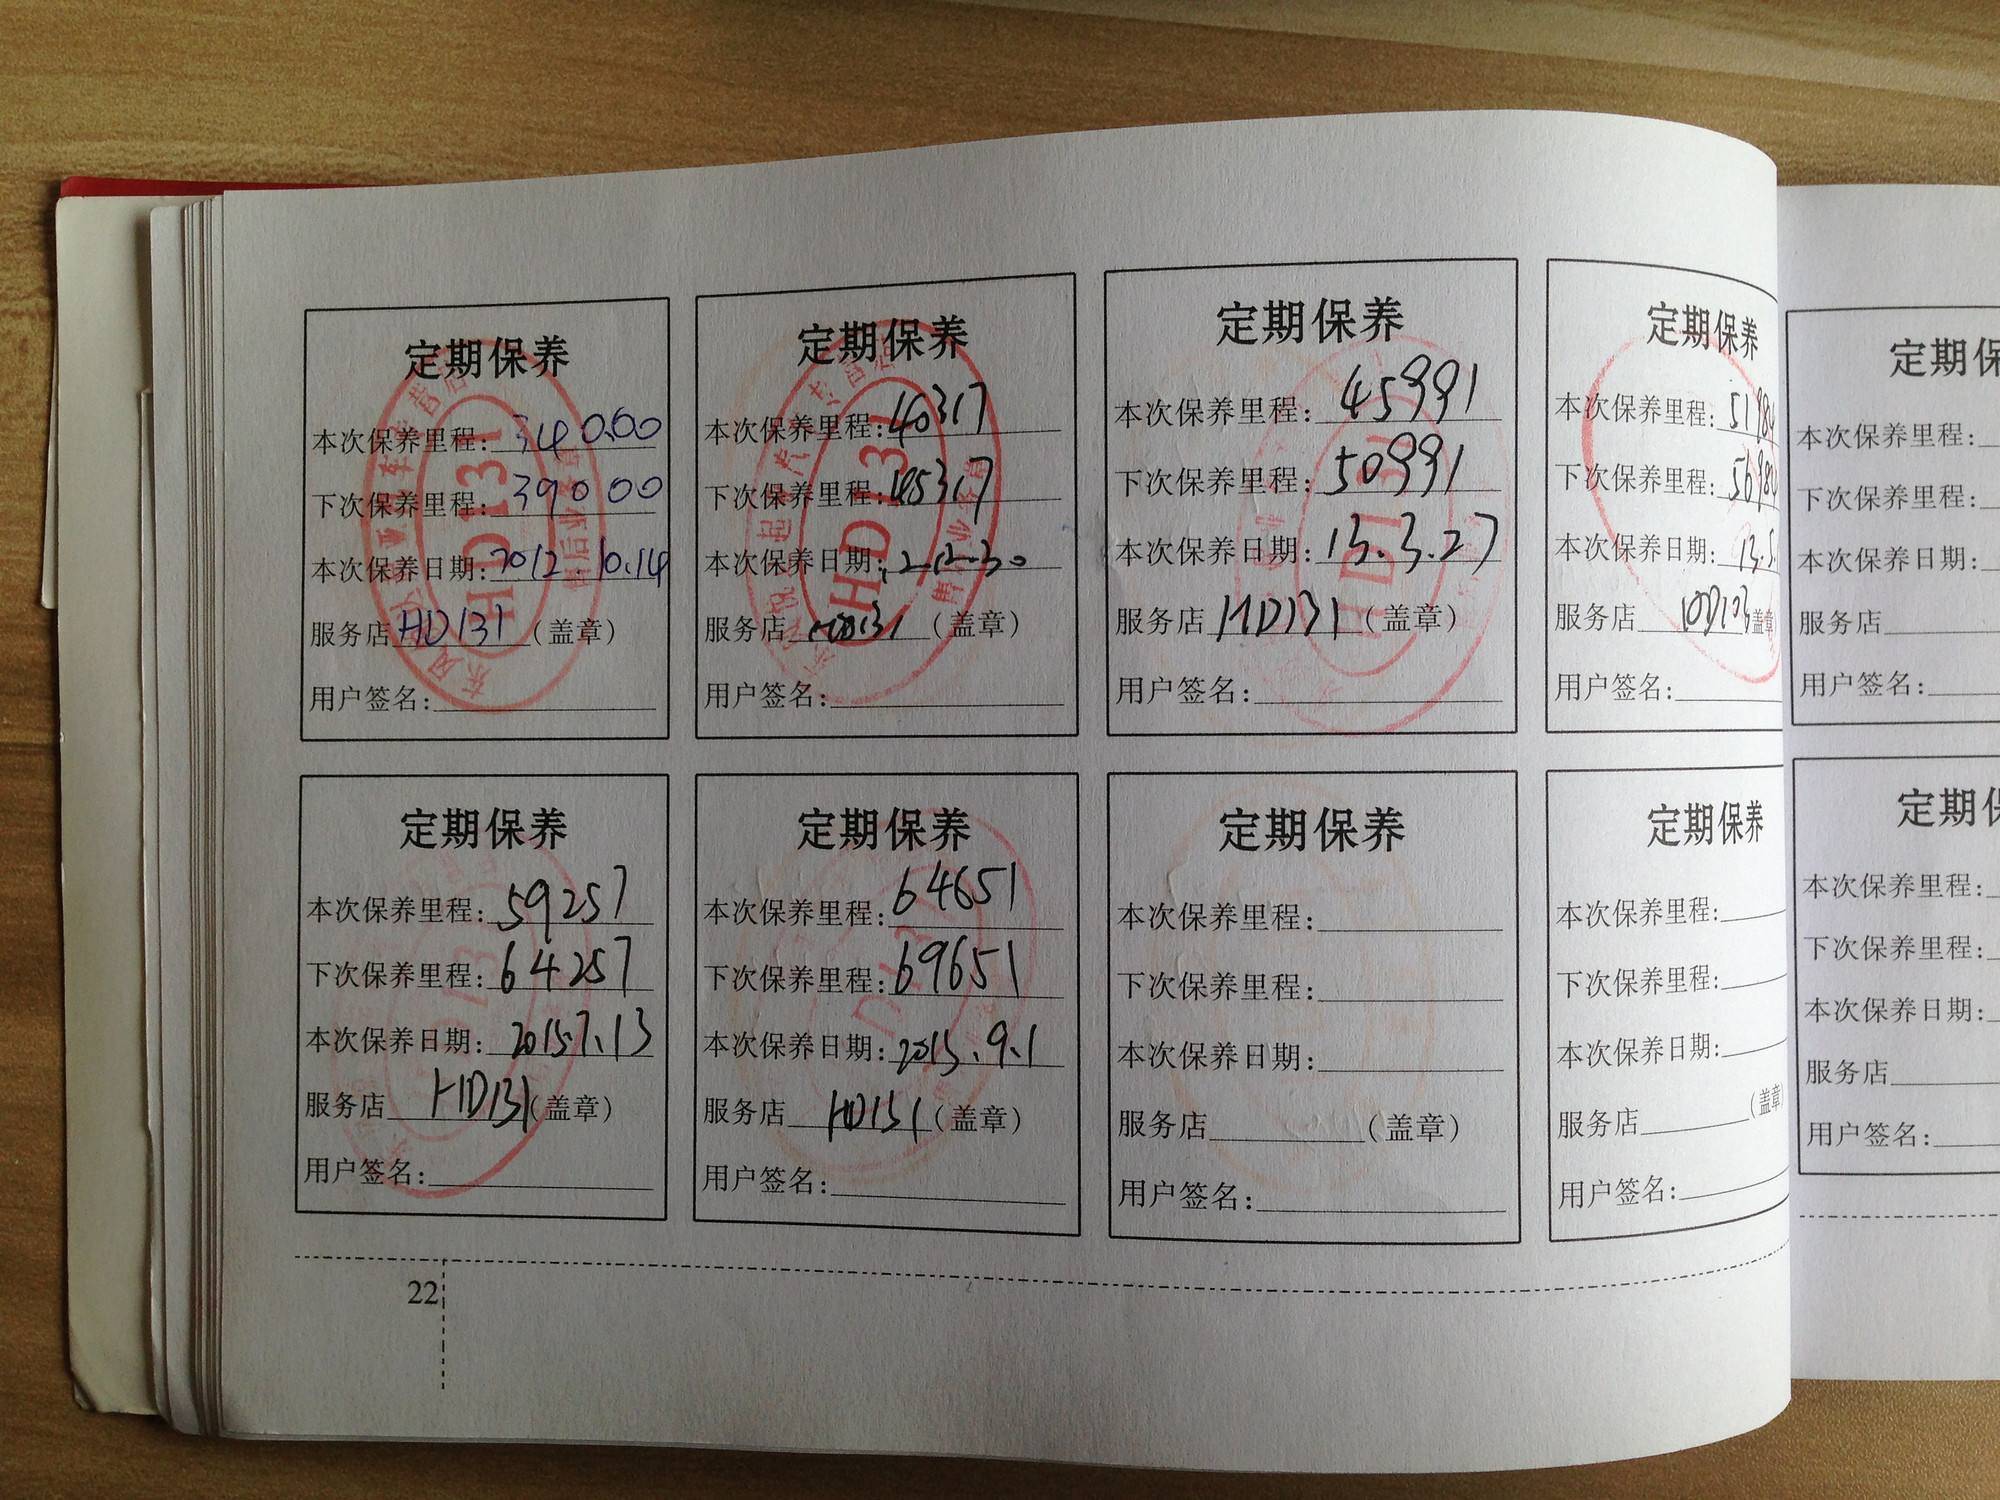 定期保养
本次保养里程: 34000
下次保养里程: 39000
本次保养日期: 2012.10.14
服务店 HD131 (盖章)
用户签名:
HD131
定期保养
本次保养里程: 40317
下次保养里程: 45317
本次保养日期: 12.12.30
服务店 HD131 (盖章)
用户签名:
HD131
定期保养
本次保养里程: 45991
下次保养里程: 50991
本次保养日期: 13.3.27
服务店 HD131 (盖章)
用户签名:
HD131
定期保养
本次保养里程: 5198
下次保养里程: 5698
本次保养日期: 13.5.
服务店 盖章
用户签名:
定期保
本次保养里程:
下次保养里程:
本次保养日期:
服务店
用户签名:
定期保养
本次保养里程: 59257
下次保养里程: 64257
本次保养日期: 2015.7.13
服务店 HD131 (盖章)
用户签名:
定期保养
本次保养里程: 64651
下次保养里程: 69651
本次保养日期: 2015.9.1
服务店 HD131 (盖章)
用户签名:
定期保养
本次保养里程:
下次保养里程:
本次保养日期:
服务店 (盖章)
用户签名:
定期保养
本次保养里程:
下次保养里程:
本次保养日期:
服务店 (盖章)
用户签名:
定期保
本次保养里程:
下次保养里程:
本次保养日期:
服务店
用户签名:
22